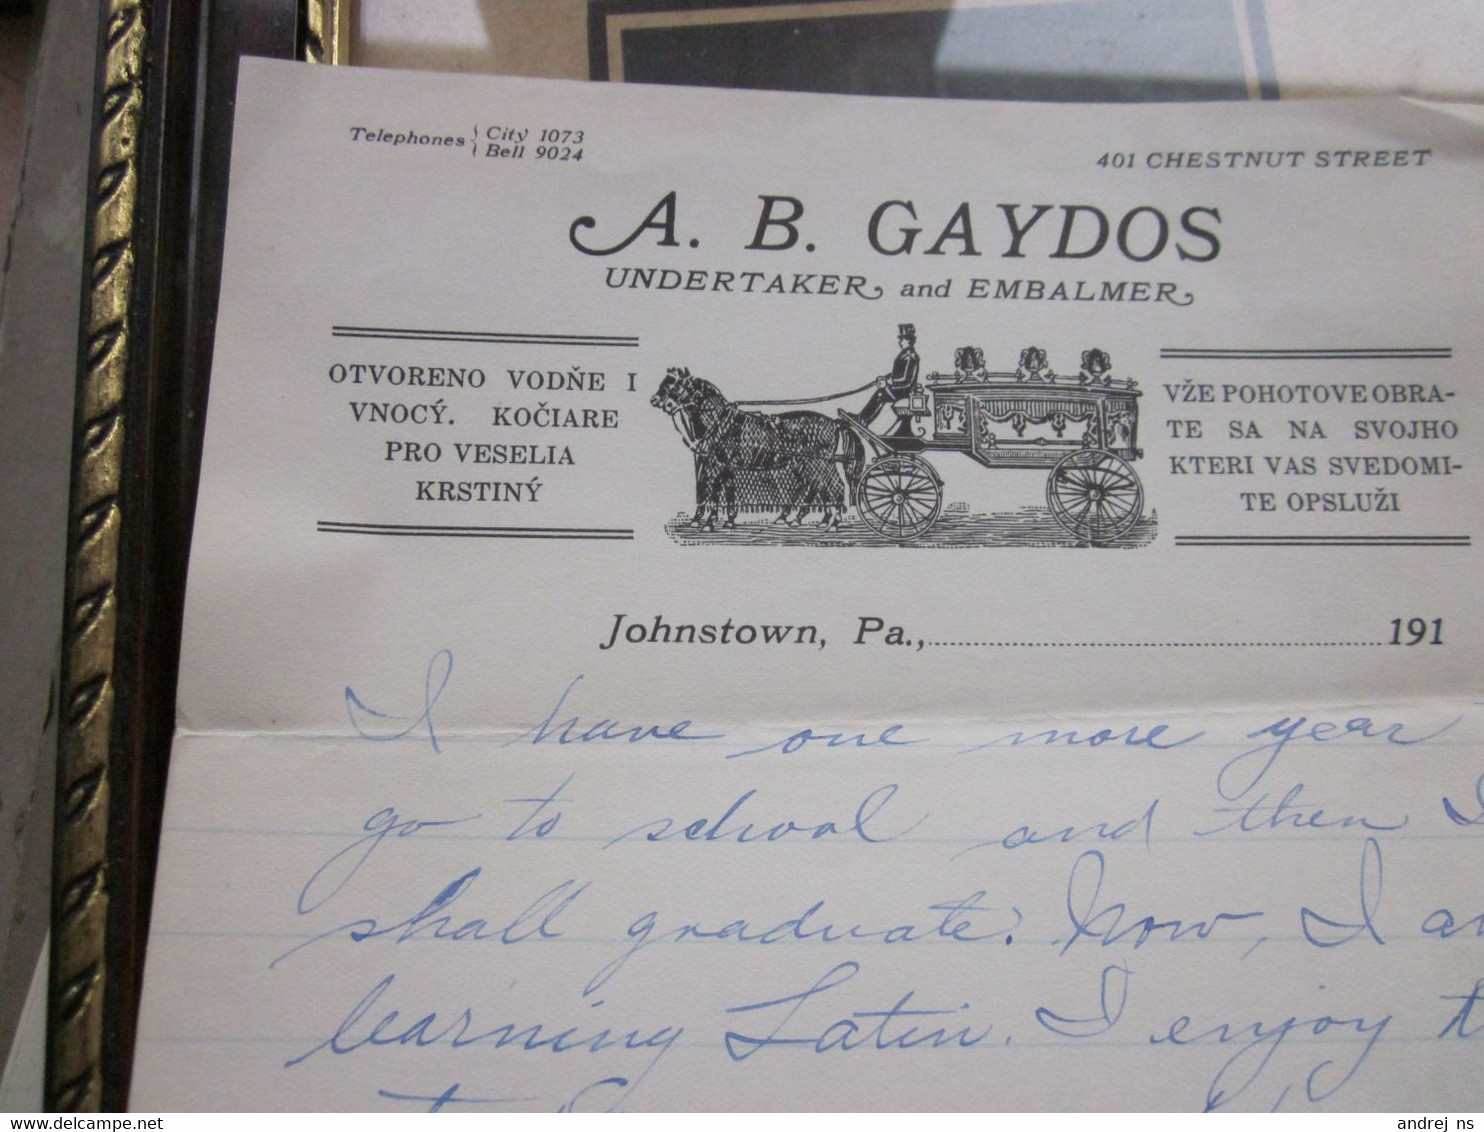 Telephones { City 1073
Bell 9024
401 CHESTNUT STREET
A. B. GAYDOS
UNDERTAKER and EMBALMER
OTVORENO VODŇE I
VNOCÝ. KOČIARE
PRO VESELIA
KRSTINÝ
VŽE POHOTOVE OBRA-
TE SA NA SVOJHO
KTERI VAS SVEDOMI-
TE OPSLUŽI
Johnstown, Pa., 191
I have one more year
go to school and then I
shall graduate. Now, I
learning Latin. I enjoy
andrej_ns